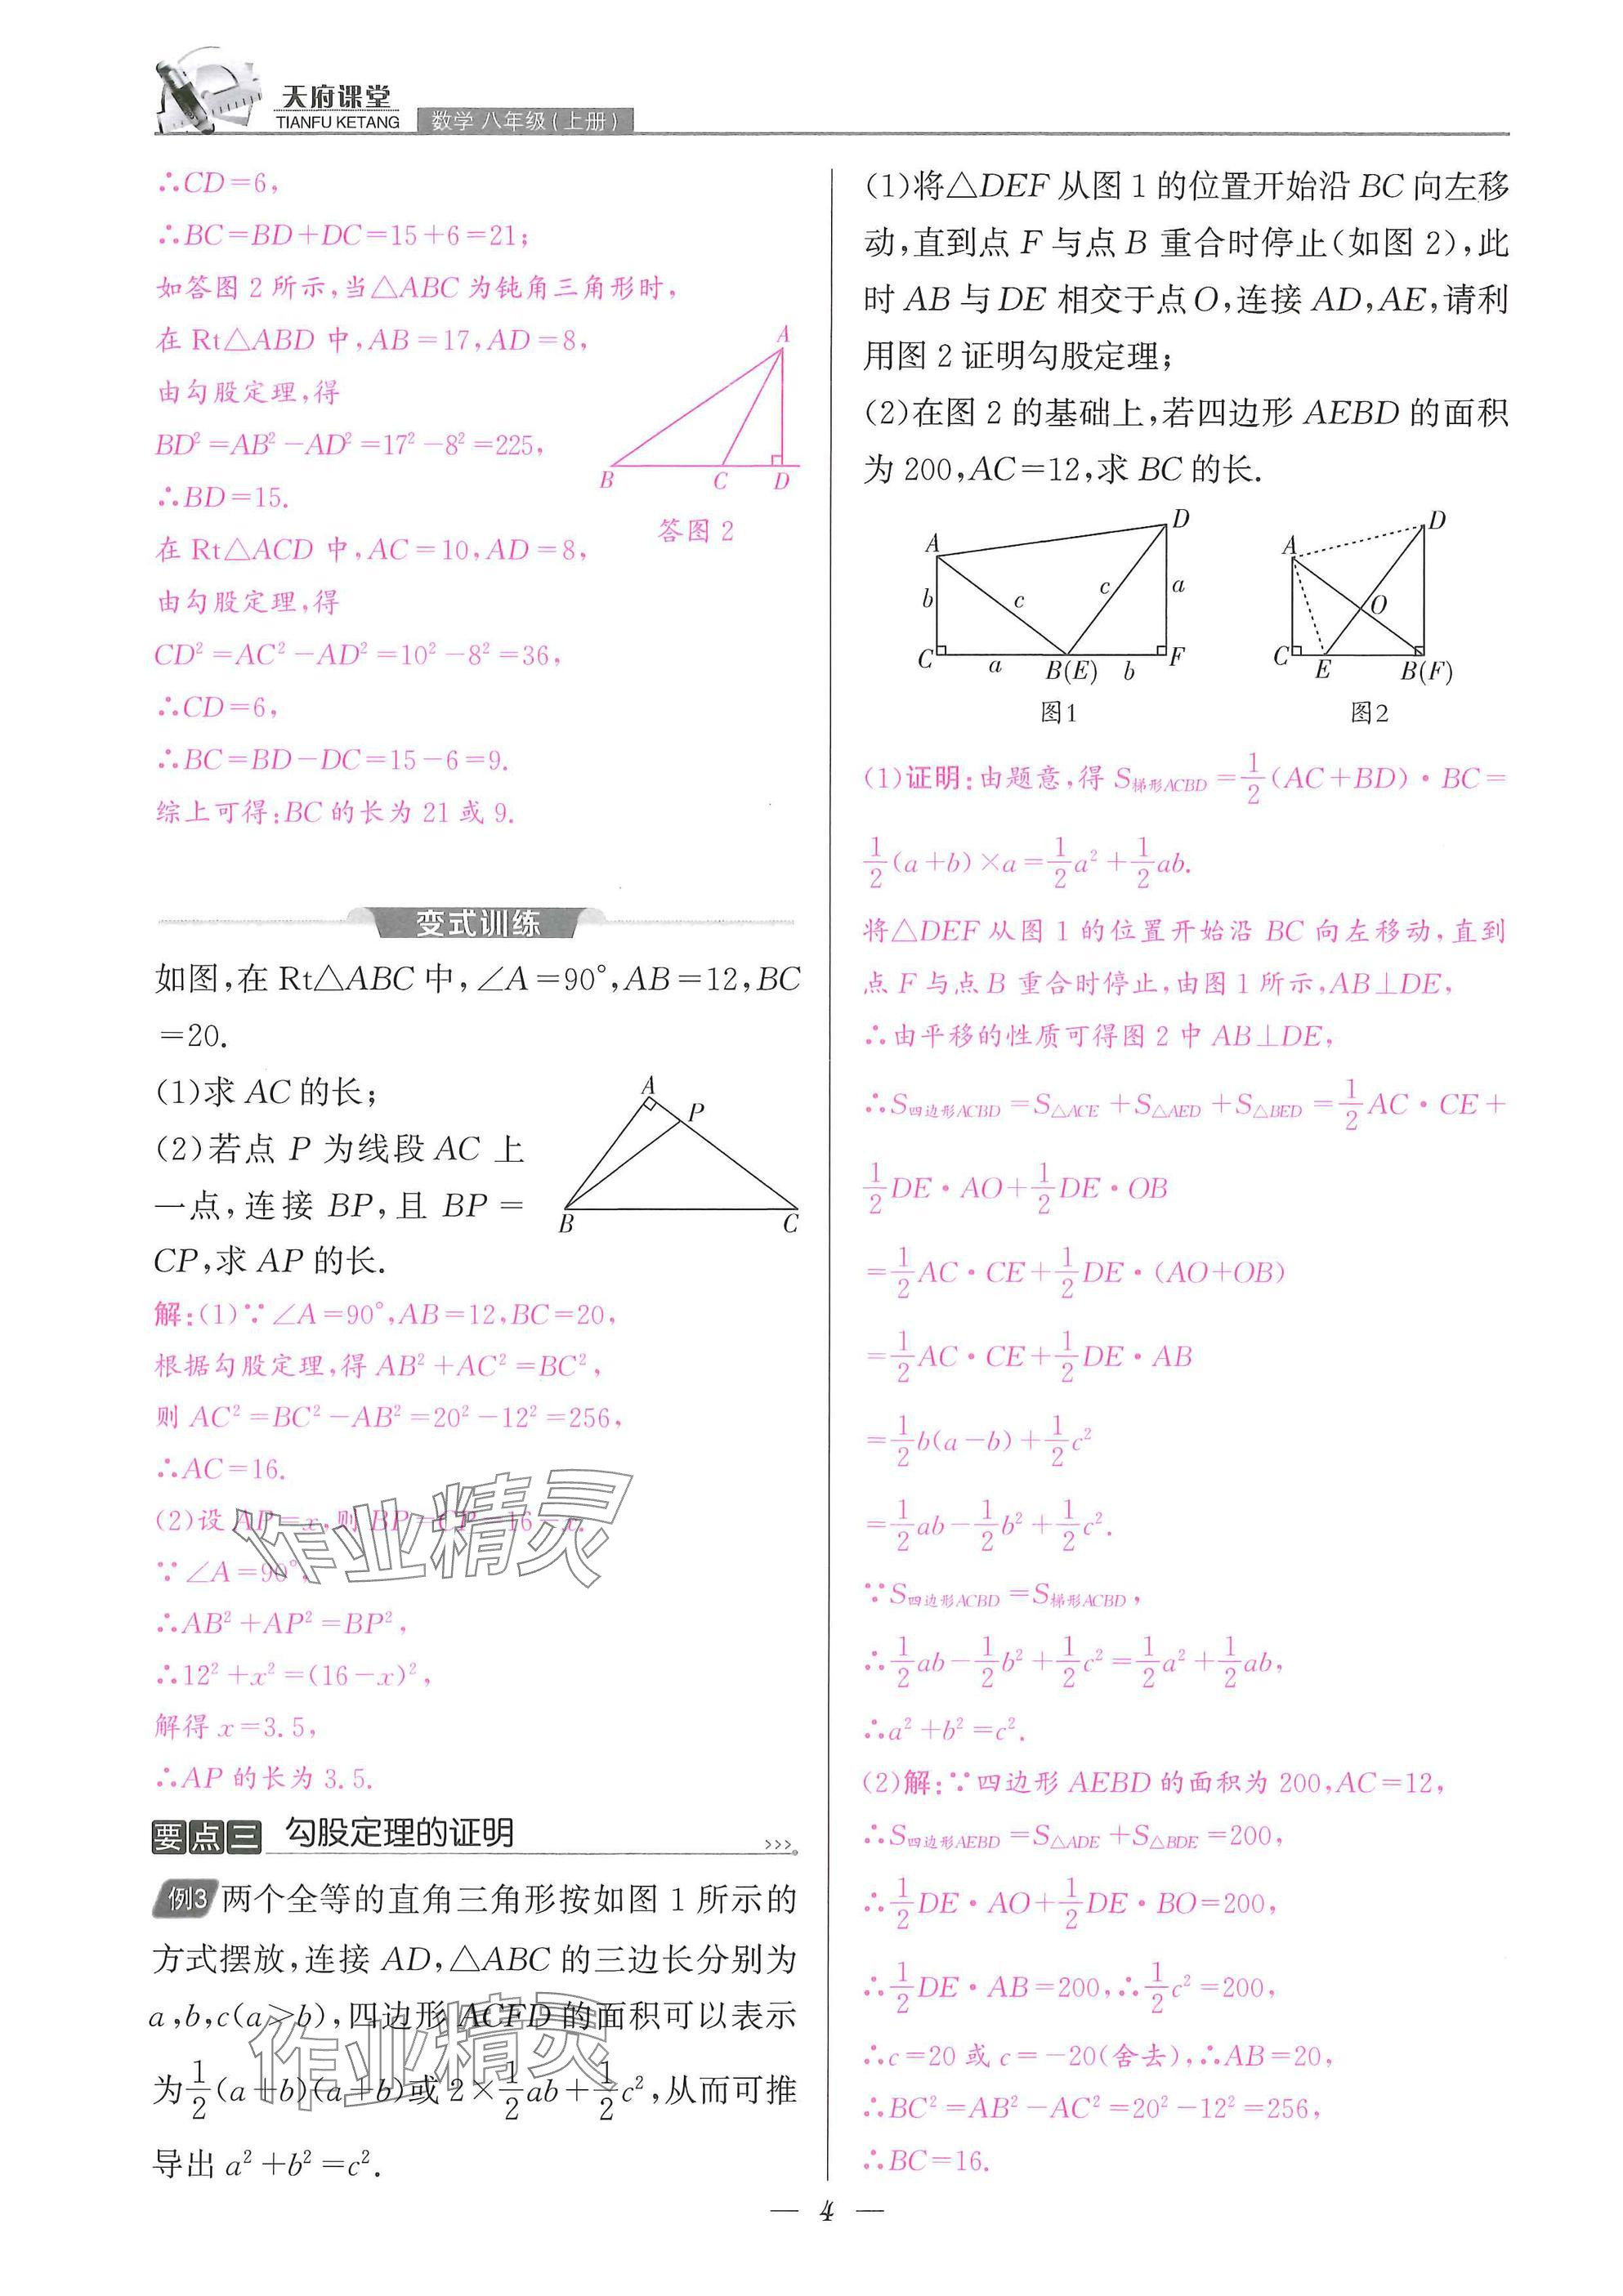 天府课堂
TIANFU KETANG
数学 八年级(上册)
∴CD=6,
∴BC=BD+DC=15+6=21;
如答图 2 所示,当△ABC 为钝角三角形时,
在 Rt△ABD 中,AB=17,AD=8,
由勾股定理,得
BD²=AB²-AD²=17²-8²=225,
∴BD=15.
在 Rt△ACD 中,AC=10,AD=8,
由勾股定理,得
CD²=AC²-AD²=10²-8²=36,
∴CD=6,
∴BC=BD-DC=15-6=9.
综上可得:BC 的长为 21 或 9.
A
B
C
D
答图 2
变式训练
如图,在 Rt△ABC 中,∠A=90°,AB=12,BC
=20.
(1)求 AC 的长;
(2)若点 P 为线段 AC 上
一点,连接 BP,且 BP=
CP,求 AP 的长.
A
P
B
C
解:(1)∵∠A=90°,AB=12,BC=20,
根据勾股定理,得 AB²+AC²=BC²,
则 AC²=BC²-AB²=20²-12²=256,
∴AC=16.
(2)设 AP=x,则 BP=CP=16-x.
∵∠A=90°,
∴AB²+AP²=BP²,
∴12²+x²=(16-x)²,
解得 x=3.5,
∴AP 的长为 3.5.
作业精灵
要点三 勾股定理的证明 >>>
例3 两个全等的直角三角形按如图 1 所示的
方式摆放,连接 AD,△ABC 的三边长分别为
a,b,c(a>b),四边形 ACFD 的面积可以表示
为1/2(a+b)(a+b)或 2×1/2ab+1/2c²,从而可推
导出 a²+b²=c².
作业精灵
(1)将△DEF 从图 1 的位置开始沿 BC 向左移
动,直到点 F 与点 B 重合时停止(如图 2),此
时 AB 与 DE 相交于点 O,连接 AD,AE,请利
用图 2 证明勾股定理;
(2)在图 2 的基础上,若四边形 AEBD 的面积
为 200,AC=12,求 BC 的长.
A
D
b
c
c
a
C
a
B(E)
b
F
图1
A
D
O
C
E
B(F)
图2
(1)证明:由题意,得 S梯形ACBD=1/2(AC+BD)·BC=
1/2(a+b)×a=1/2a²+1/2ab.
将△DEF 从图 1 的位置开始沿 BC 向左移动,直到
点 F 与点 B 重合时停止,由图 1 所示,AB⊥DE,
∴由平移的性质可得图 2 中 AB⊥DE,
∴S四边形ACBD=S△ACE+S△AED+S△BED=1/2AC·CE+
1/2DE·AO+1/2DE·OB
=1/2AC·CE+1/2DE·(AO+OB)
=1/2AC·CE+1/2DE·AB
=1/2b(a-b)+1/2c²
=1/2ab-1/2b²+1/2c².
∵S四边形ACBD=S梯形ACBD,
∴1/2ab-1/2b²+1/2c²=1/2a²+1/2ab,
∴a²+b²=c².
(2)解:∵四边形 AEBD 的面积为 200,AC=12,
∴S四边形AEBD=S△ADE+S△BDE=200,
∴1/2DE·AO+1/2DE·BO=200,
∴1/2DE·AB=200,∴1/2c²=200,
∴c=20 或 c=-20(舍去),∴AB=20,
∴BC²=AB²-AC²=20²-12²=256,
∴BC=16.
— 4 —